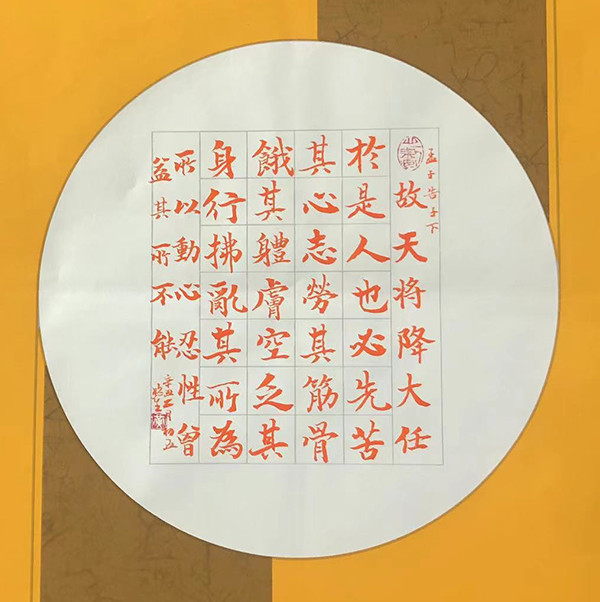 孟子告子下
故天将降大任
於是人也必先苦
其心志勞其筋骨
餓其體膚空乏其
身行拂亂其所為
所以動心忍性曾
益其所不能
辛丑二月初五